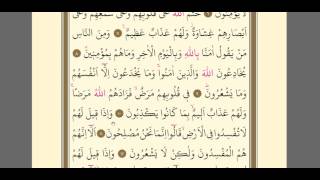 لَا يُؤْمِنُونَ ۝ خَتَمَ اللّٰهُ عَلٰى قُلُوبِهِمْ وَعَلٰى سَمْعِهِمْ وَعَلٰٓى
اَبْصَارِهِمْ غِشَاوَةٌ وَلَهُمْ عَذَابٌ عَظِيمٌ ۝ وَمِنَ النَّاسِ
مَنْ يَقُولُ اٰمَنَّا بِاللّٰهِ وَبِالْيَوْمِ الْاٰخِرِ وَمَا هُمْ بِمُؤْمِنِينَ ۝
يُخَادِعُونَ اللّٰهَ وَالَّذِينَ اٰمَنُوا وَمَا يَخْدَعُونَ اِلَّٓا اَنْفُسَهُمْ
وَمَا يَشْعُرُونَ ۝ فِي قُلُوبِهِمْ مَرَضٌ فَزَادَهُمُ اللّٰهُ مَرَضًا
وَلَهُمْ عَذَابٌ اَلِيمٌ بِمَا كَانُوا يَكْذِبُونَ ۝ وَاِذَا قِيلَ لَهُمْ
لَا تُفْسِدُوا فِي الْاَرْضِ قَالُٓوا اِنَّمَا نَحْنُ مُصْلِحُونَ ۝ اَلَٓا اِنَّهُمْ
هُمُ الْمُفْسِدُونَ وَلٰكِنْ لَا يَشْعُرُونَ ۝ وَاِذَا قِيلَ لَهُمْ